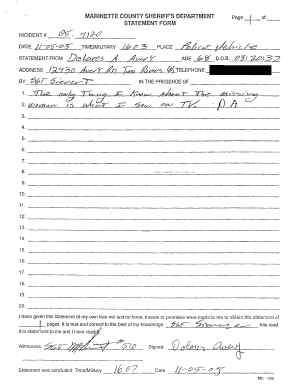 MARINETTE COUNTY SHERIFF'S DEPARTMENT
STATEMENT FORM
Page 1 of
INCIDENT # 05-7120
DATE 11-05-05 TIME/MILITARY 1603 PLACE Police Vehicle
STATEMENT FROM Dolores A. Avery AGE 68 D.O.B. 082037
ADDRESS 12930 Avery Rd Two Rivers WI TELEPHONE
BY SGT Sievert IN THE PRESENCE OF
1. The only Thing I Know about The missing
2. Woman is what I saw on TV. DA
3.
4.
5.
6.
7.
8.
9.
10.
11.
12.
13.
14.
15.
16.
17.
18.
19.
20.
I have given this statement of my own free will and no force, threats or promises were made to me to obtain this statement of
1 pages. It is true and correct to the best of my knowledge. SGT Sievert has read
this statement to me and I have read it.
Witnesses: SGT #510 Signed: Dolores Avery
Statement was concluded: Time/Military 1607 Date 11-05-05
MC -